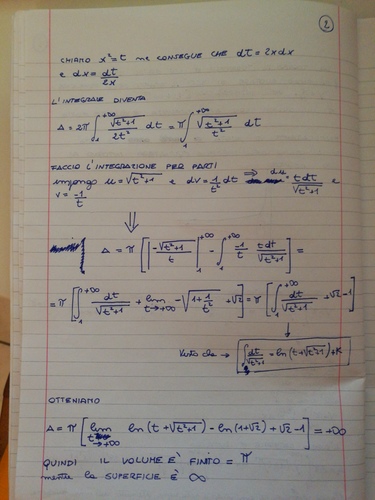 2
CHIAMO x²=t NE CONSEGUE CHE dt=2xdx
e dx = dt/2x
L'INTEGRALE DIVENTA
A = 2π ∫₁^+∞ √(t²+1)/2t² dt = π ∫₁^+∞ √(t²+1)/t² dt
FACCIO L'INTEGRAZIONE PER PARTI
impongo u=√(t²+1) e dv=1/t² dt ⇒ du = t dt/√(t²+1) e
v = -1/t
⇓
A = π [ |-√(t²+1)/t|₁^+∞ - ∫₁^+∞ -1/t t dt/√(t²+1) ] =
= π [ ∫₁^+∞ dt/√(t²+1) + lim t→+∞ -√(1+1/t²) + √2 ] = π [ ∫₁^+∞ dt/√(t²+1) + √2 - 1 ]
↓
Visto che → ∫ dt/√(t²+1) = ln(t+√(t²+1)) + K
OTTENIAMO
A = π [ lim t→+∞ ln(t+√(t²+1)) - ln(1+√2) + √2 - 1 ] = +∞
QUINDI IL VOLUME E' FINITO = π
mentre la SUPERFICIE È ∞